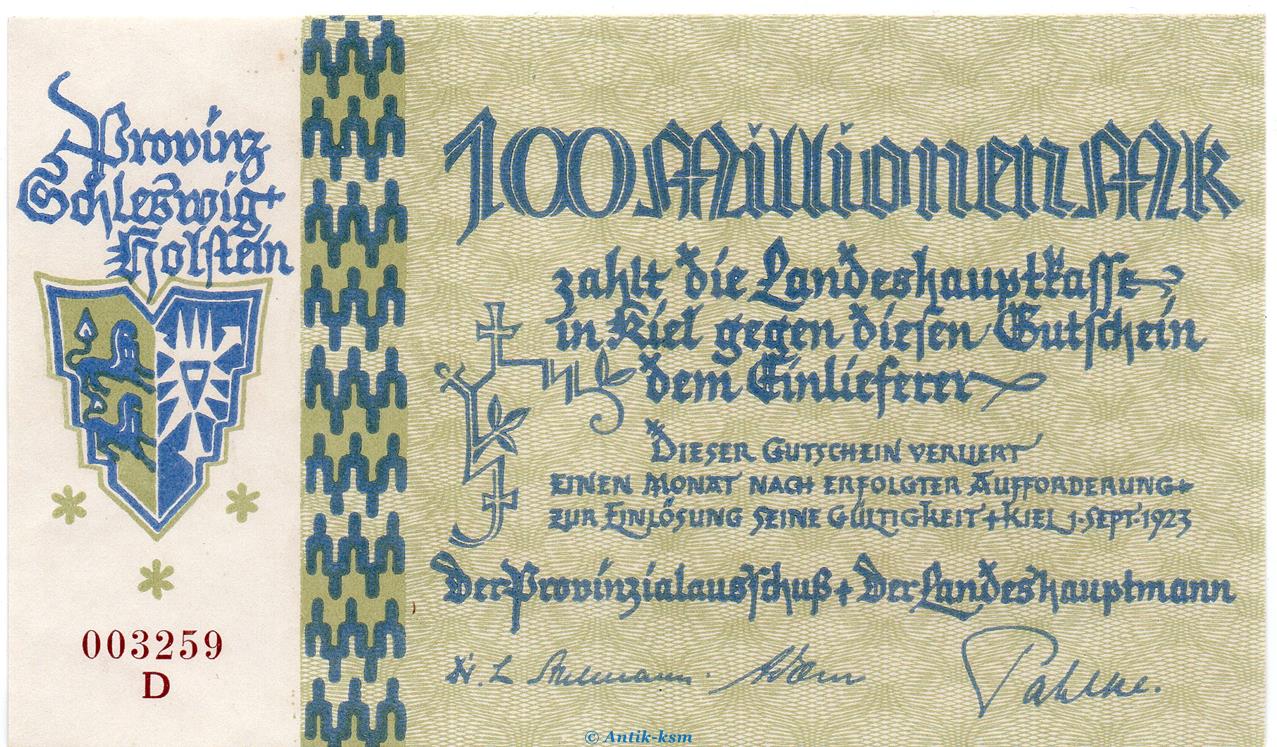 Provinz
Schleswig-
Holstein
003259
D
100 Millionen Mk
zahlt die Landeshauptkasse
in Kiel gegen diesen Gutschein
dem Einlieferer
DIESER GUTSCHEIN VERLIERT
EINEN MONAT NACH ERFOLGTER AUFFORDERUNG
ZUR EINLÖSUNG SEINE GÜLTIGKEIT + KIEL 1. SEPT. 1923
Der Provinzialausschuß + Der Landeshauptmann
Pahlke.
© Antik-ksm